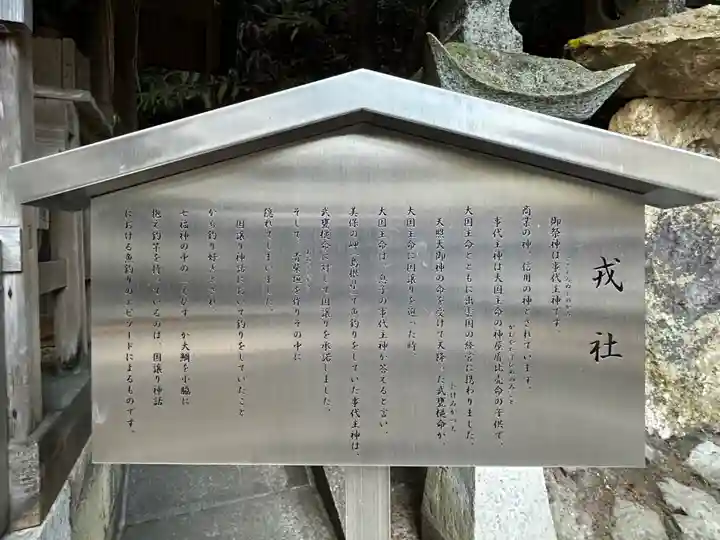 戎社
御祭神は事代主神です。
商業の神、信用の神とされています。
事代主神は大国主命の神屋楯比売命の子供で、
大国主命とともに出雲国の経営に携わりました。
天照大御神の命を受けて天降った武甕槌命が、
大国主命に国譲りを迫った時、
大国主命は、息子の事代主神が答えると言い、
美保の岬(島根県)で魚釣りをしていた事代主神は、
武甕槌命に対して国譲りを承諾しました。
そして、青柴垣を作りその中に
隠れてしまいました。
国譲り神話において釣りをしていたこと
から釣り好きとされ、
七福神の中の「えびす」が大鯛を小脇に
抱え釣竿を持っているのは、国譲り神話
における魚釣りのエピソードによるものです。